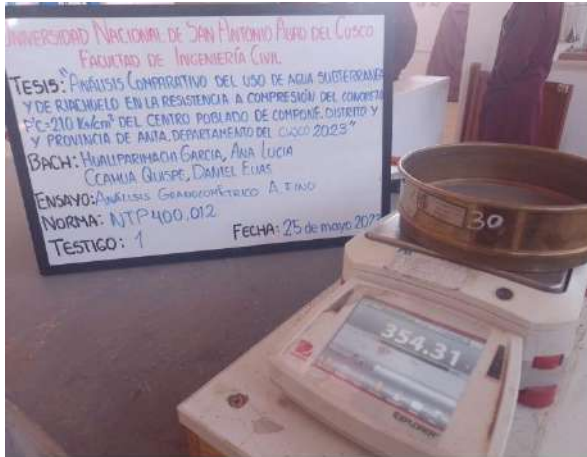 UNIVERSIDAD NACIONAL DE SAN ANTONIO ABAD DEL CUSCO
FACULTAD DE INGENIERÍA CIVIL
TESIS: "ANÁLISIS COMPARATIVO DEL USO DE AGUA SUBTERRANEA
Y DE RIACHUELO EN LA RESISTENCIA A COMPRESIÓN DEL CONCRETO
F'C=210 KG/CM² DEL CENTRO POBLADO DE COMPONE, DISTRITO Y
Y PROVINCIA DE ANTA, DEPARTAMENTO DEL CUSCO 2023"
BACH: HUALLPARIMACHI GARCIA, ANA LUCIA
CCAHUA QUISPE, DANIEL ELIAS
ENSAYO: ANÁLISIS GRANULOMÉTRICO A. FINO
NORMA: NTP 400.012
TESTIGO: 1
FECHA: 25 de mayo 2023
30
354.31
EXPLORER